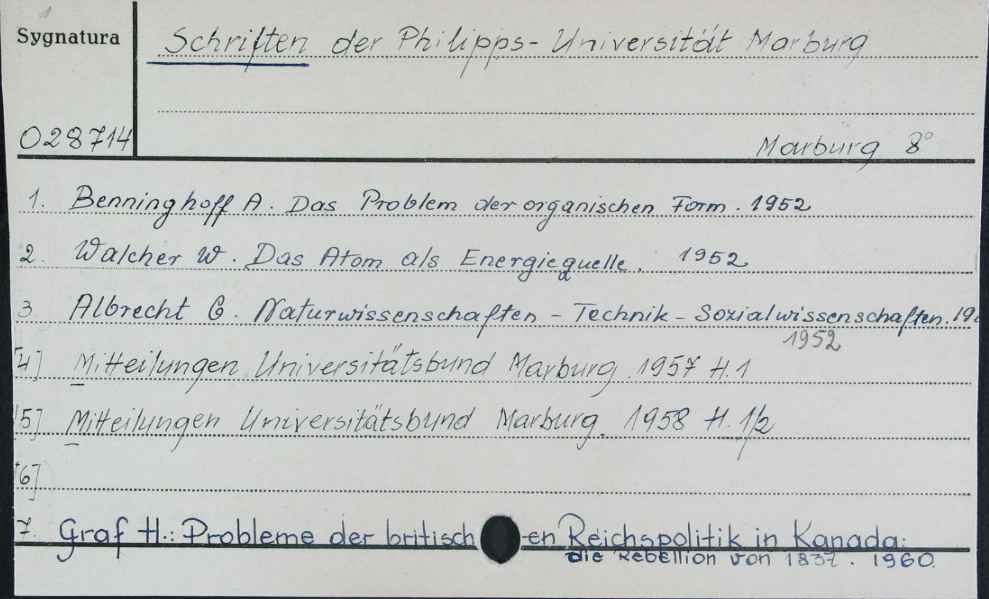 Sygnatura
Schriften der Philipps-Universität Marburg
028714
Marburg 8°
1. Benninghoff A. Das Problem der organischen Form. 1952
2. Walcher W. Das Atom als Energiequelle. 1952
3 Albrecht G. Naturwissenschaften - Technik - Sozialwissenschaften.
1952
[4] Mitteilungen Universitätsbund Marburg. 1957 H.1
[5] Mitteilungen Universitätsbund Marburg. 1958 H. 1/2
[6]
7. Graf H.: Probleme der britischen Reichspolitik in Kanada:
die Rebellion von 1837. 1960.